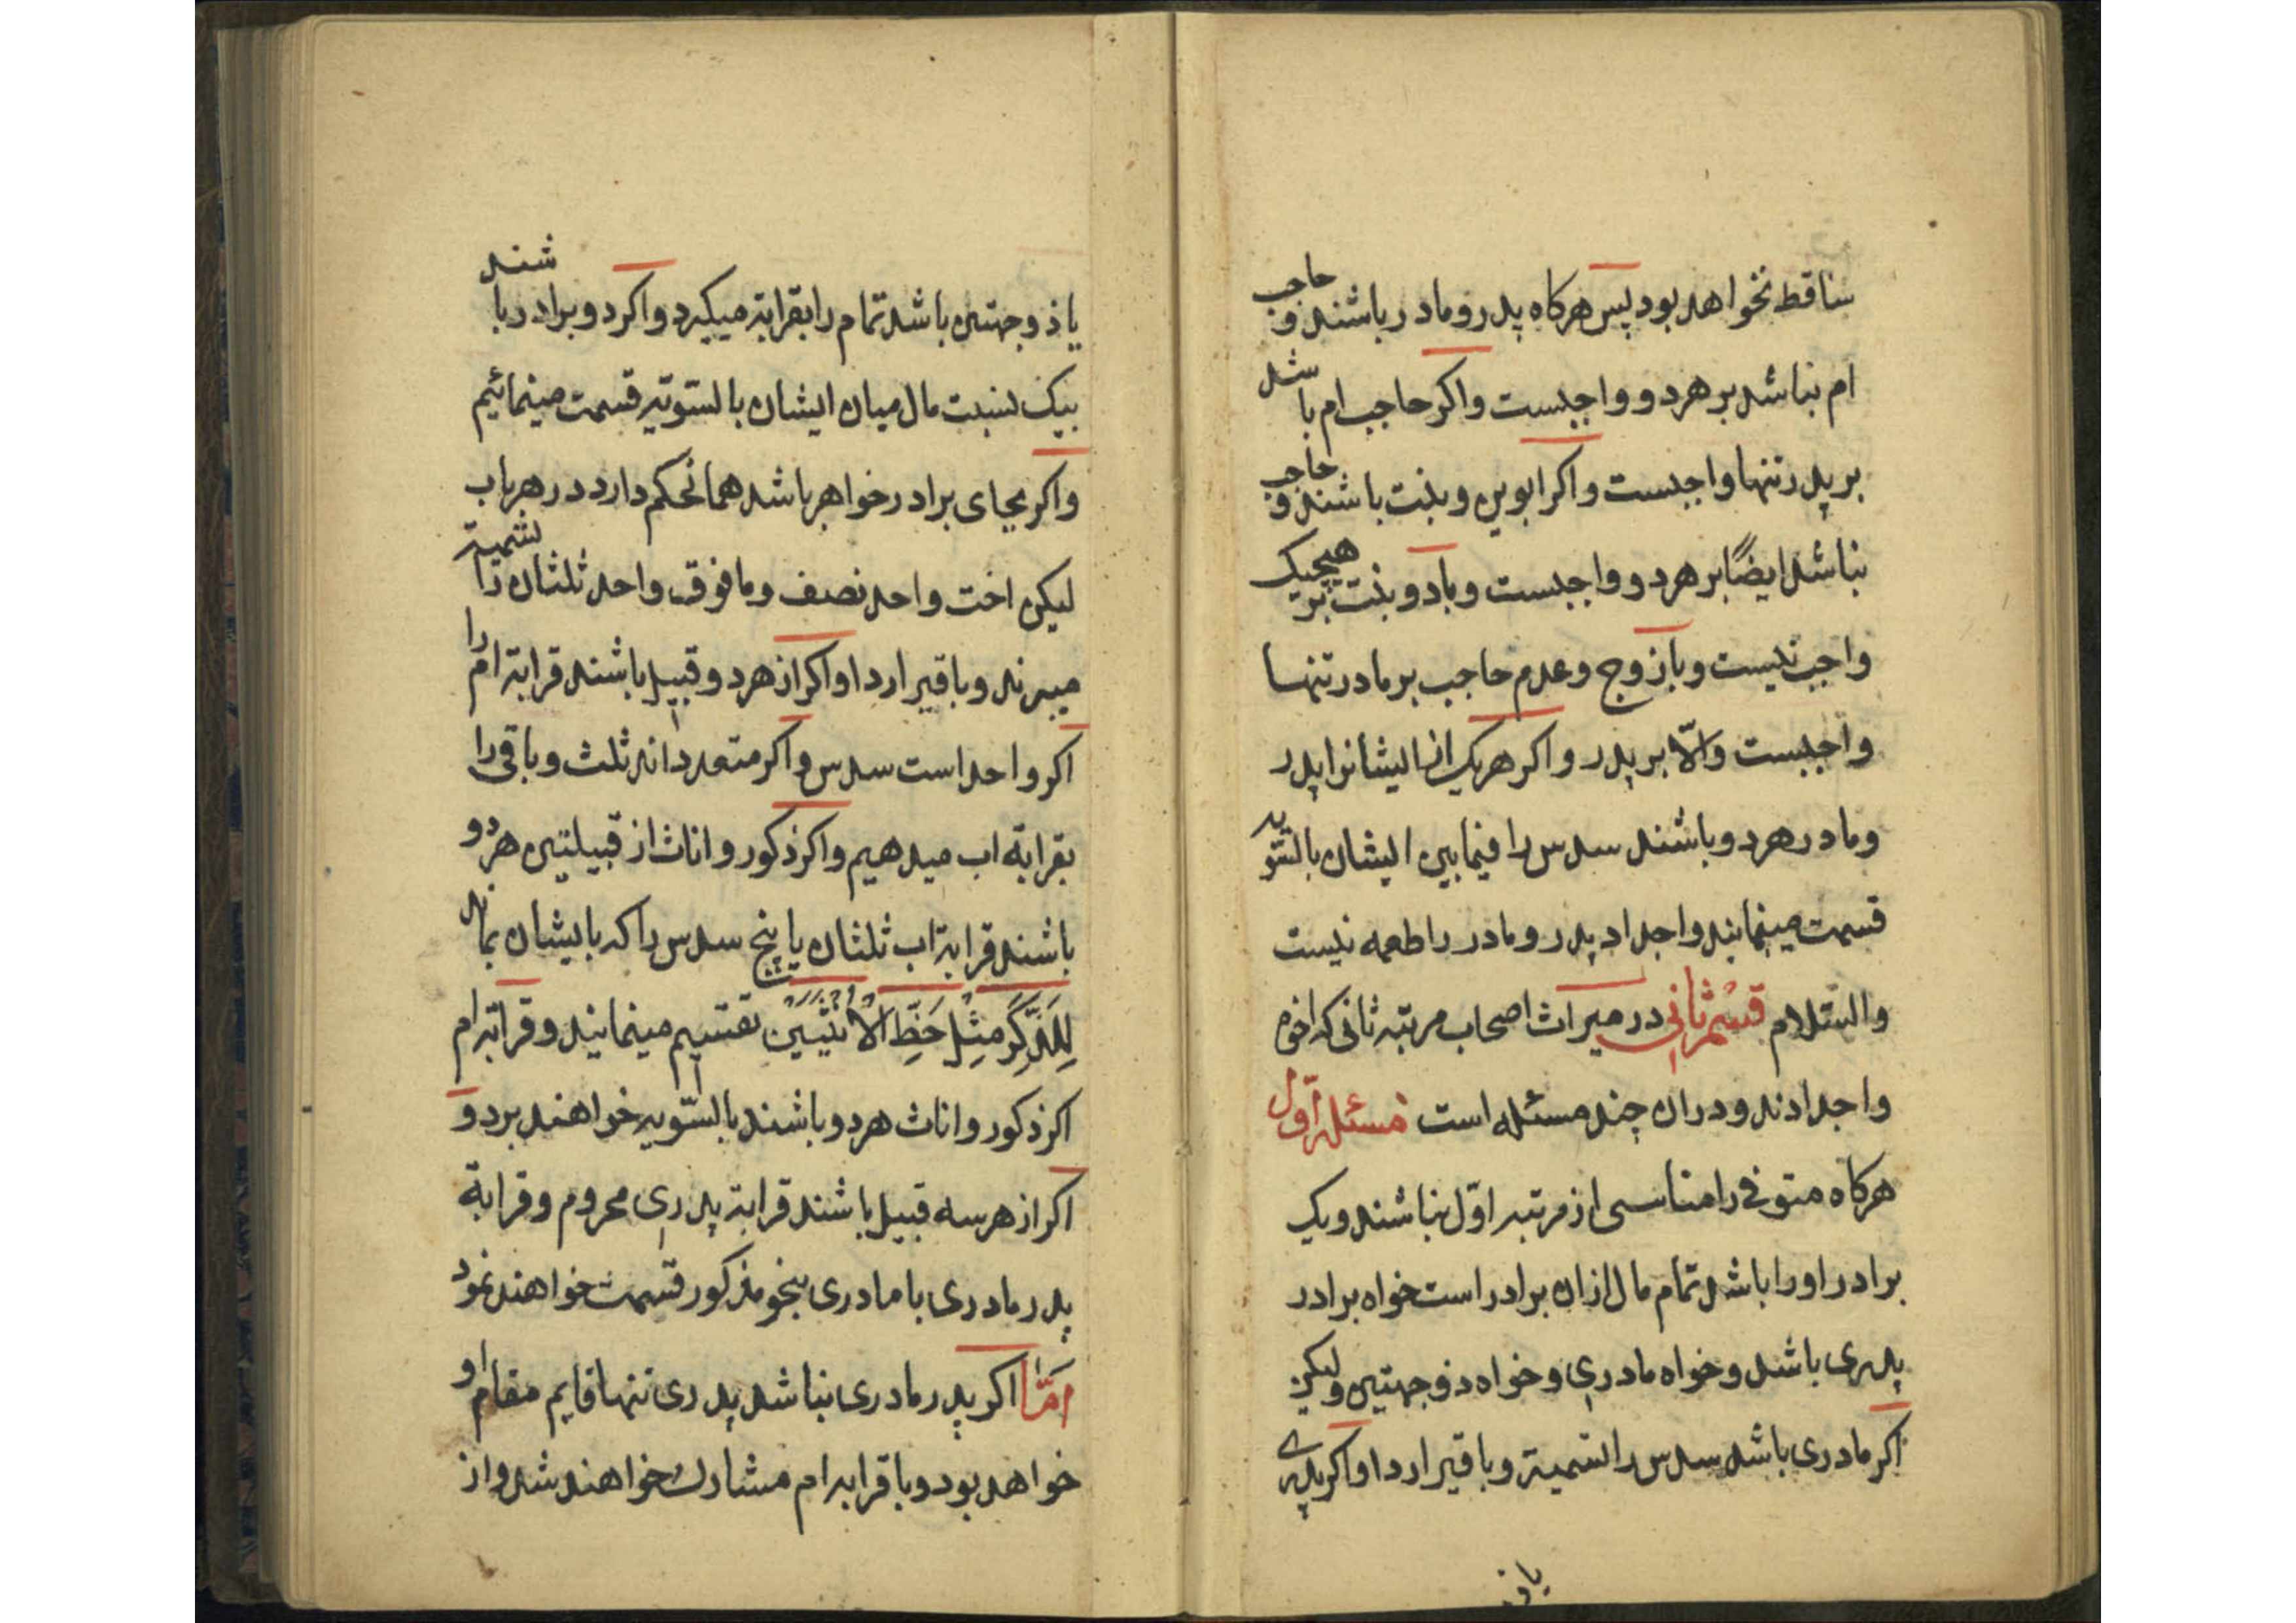 ساقط نخواهد بود پس هرکاه پدر و مادر باشند و حاجب
ام نباشد بر هردو واجبست واکر حاجب ام باشد
بر پدر تنها واجبست واکر ابوین و بنت باشند و حاجب
نباشد ایضًا بر هردو واجبست و با دو بنت بر هیچیک
واجب نیست و با زوج و عدم حاجب بر مادر تنها
واجبست والّا بر پدر واکر هریک از ایشانرا پدر
و مادر هردو باشند سدس را فیمابین ایشان بالسّویه
قسمت مینمایند و اجداد پدر و مادر را طعمه نیست
والسّلام قسم ثانی در میراث اصحاب مرتبه ثانی که اخوه
واجدادند و دران چند مسئله است مسئله اوّل
هرکاه متوفی را مناسبی از مرتبه اوّل نباشند و یک
برادر او را باشد تمام مال ازان برادر است خواه برادر
پدری باشد و خواه مادری و خواه ذوجهتین ولیکن
اکر مادری باشد سدس را تسمیة و باقیرا ردا واکر پدری
یا ذو
یا ذوجهتین باشد تمام را بقرابة میکیرد واکر دو برادر باشند
بیک نسبت مال میان ایشان بالسّویّه قسمت مینمائیم
واکر بجای برادر خواهر باشد همانحکم دارد در هرباب
لیکن اخت واحد نصف و مافوق واحد ثلثان را تسمیة
میبرند و باقیرا ردا واکر از هردو قبیل باشند قرابة ام را
اکر واحد است سدس واکر متعددند ثلث و باقی را
بقرابة اب میدهیم واکر ذکور و اناث از قبیلتین هردو
باشند قرابة اب ثلثان یا پنج سدس را که بایشان بماند
لِلذَّكَرِ مِثْلُ حَظِّ الْأُنْثَيَيْنِ تقسیم مینمایند و قرابة ام
اکر ذکور و اناث هردو باشند بالسّویه خواهند برد و
اکر از هر سه قبیل باشند قرابة پدری محروم و قرابة
پدر مادری با مادری بنحو مذکور قسمت خواهند نمود
امّا اکر پدر مادری نباشد پدری تنها قایم مقام او
خواهد بود و با قرابه ام مشارک خواهند شد و از